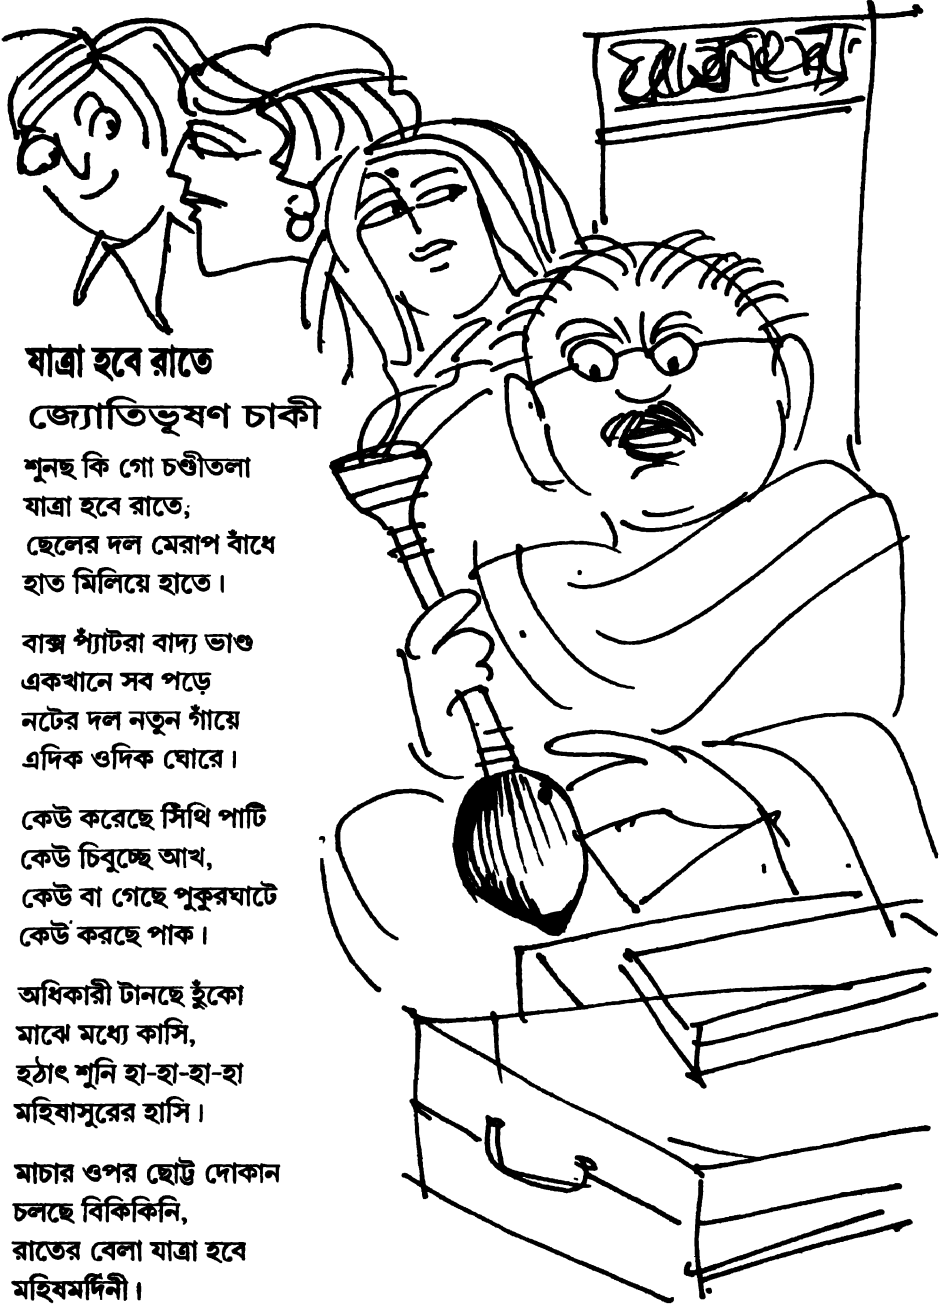 যাত্রা হবে রাতে
জ্যোতিভূষণ চাকী
শুনছ কি গো চণ্ডীতলা
যাত্রা হবে রাতে;
ছেলের দল মেরাপ বাঁধে
হাত মিলিয়ে হাতে।
বাক্স প্যাঁটরা বাদ্য ভাণ্ড
একখানে সব পড়ে
নটের দল নতুন গাঁয়ে
এদিক ওদিক ঘোরে।
কেউ করেছে সিঁথি পাটি
কেউ চিবুচ্ছে আখ,
কেউ বা গেছে পুকুরঘাটে
কেউ করছে পাক।
অধিকারী টানছে হুঁকো
মাঝে মধ্যে কাসি,
হঠাৎ শুনি হা-হা-হা-হা
মহিষাসুরের হাসি।
মাচার ওপর ছোট্ট দোকান
চলছে বিকিকিনি,
রাতের বেলা যাত্রা হবে
মহিষমর্দিনী।